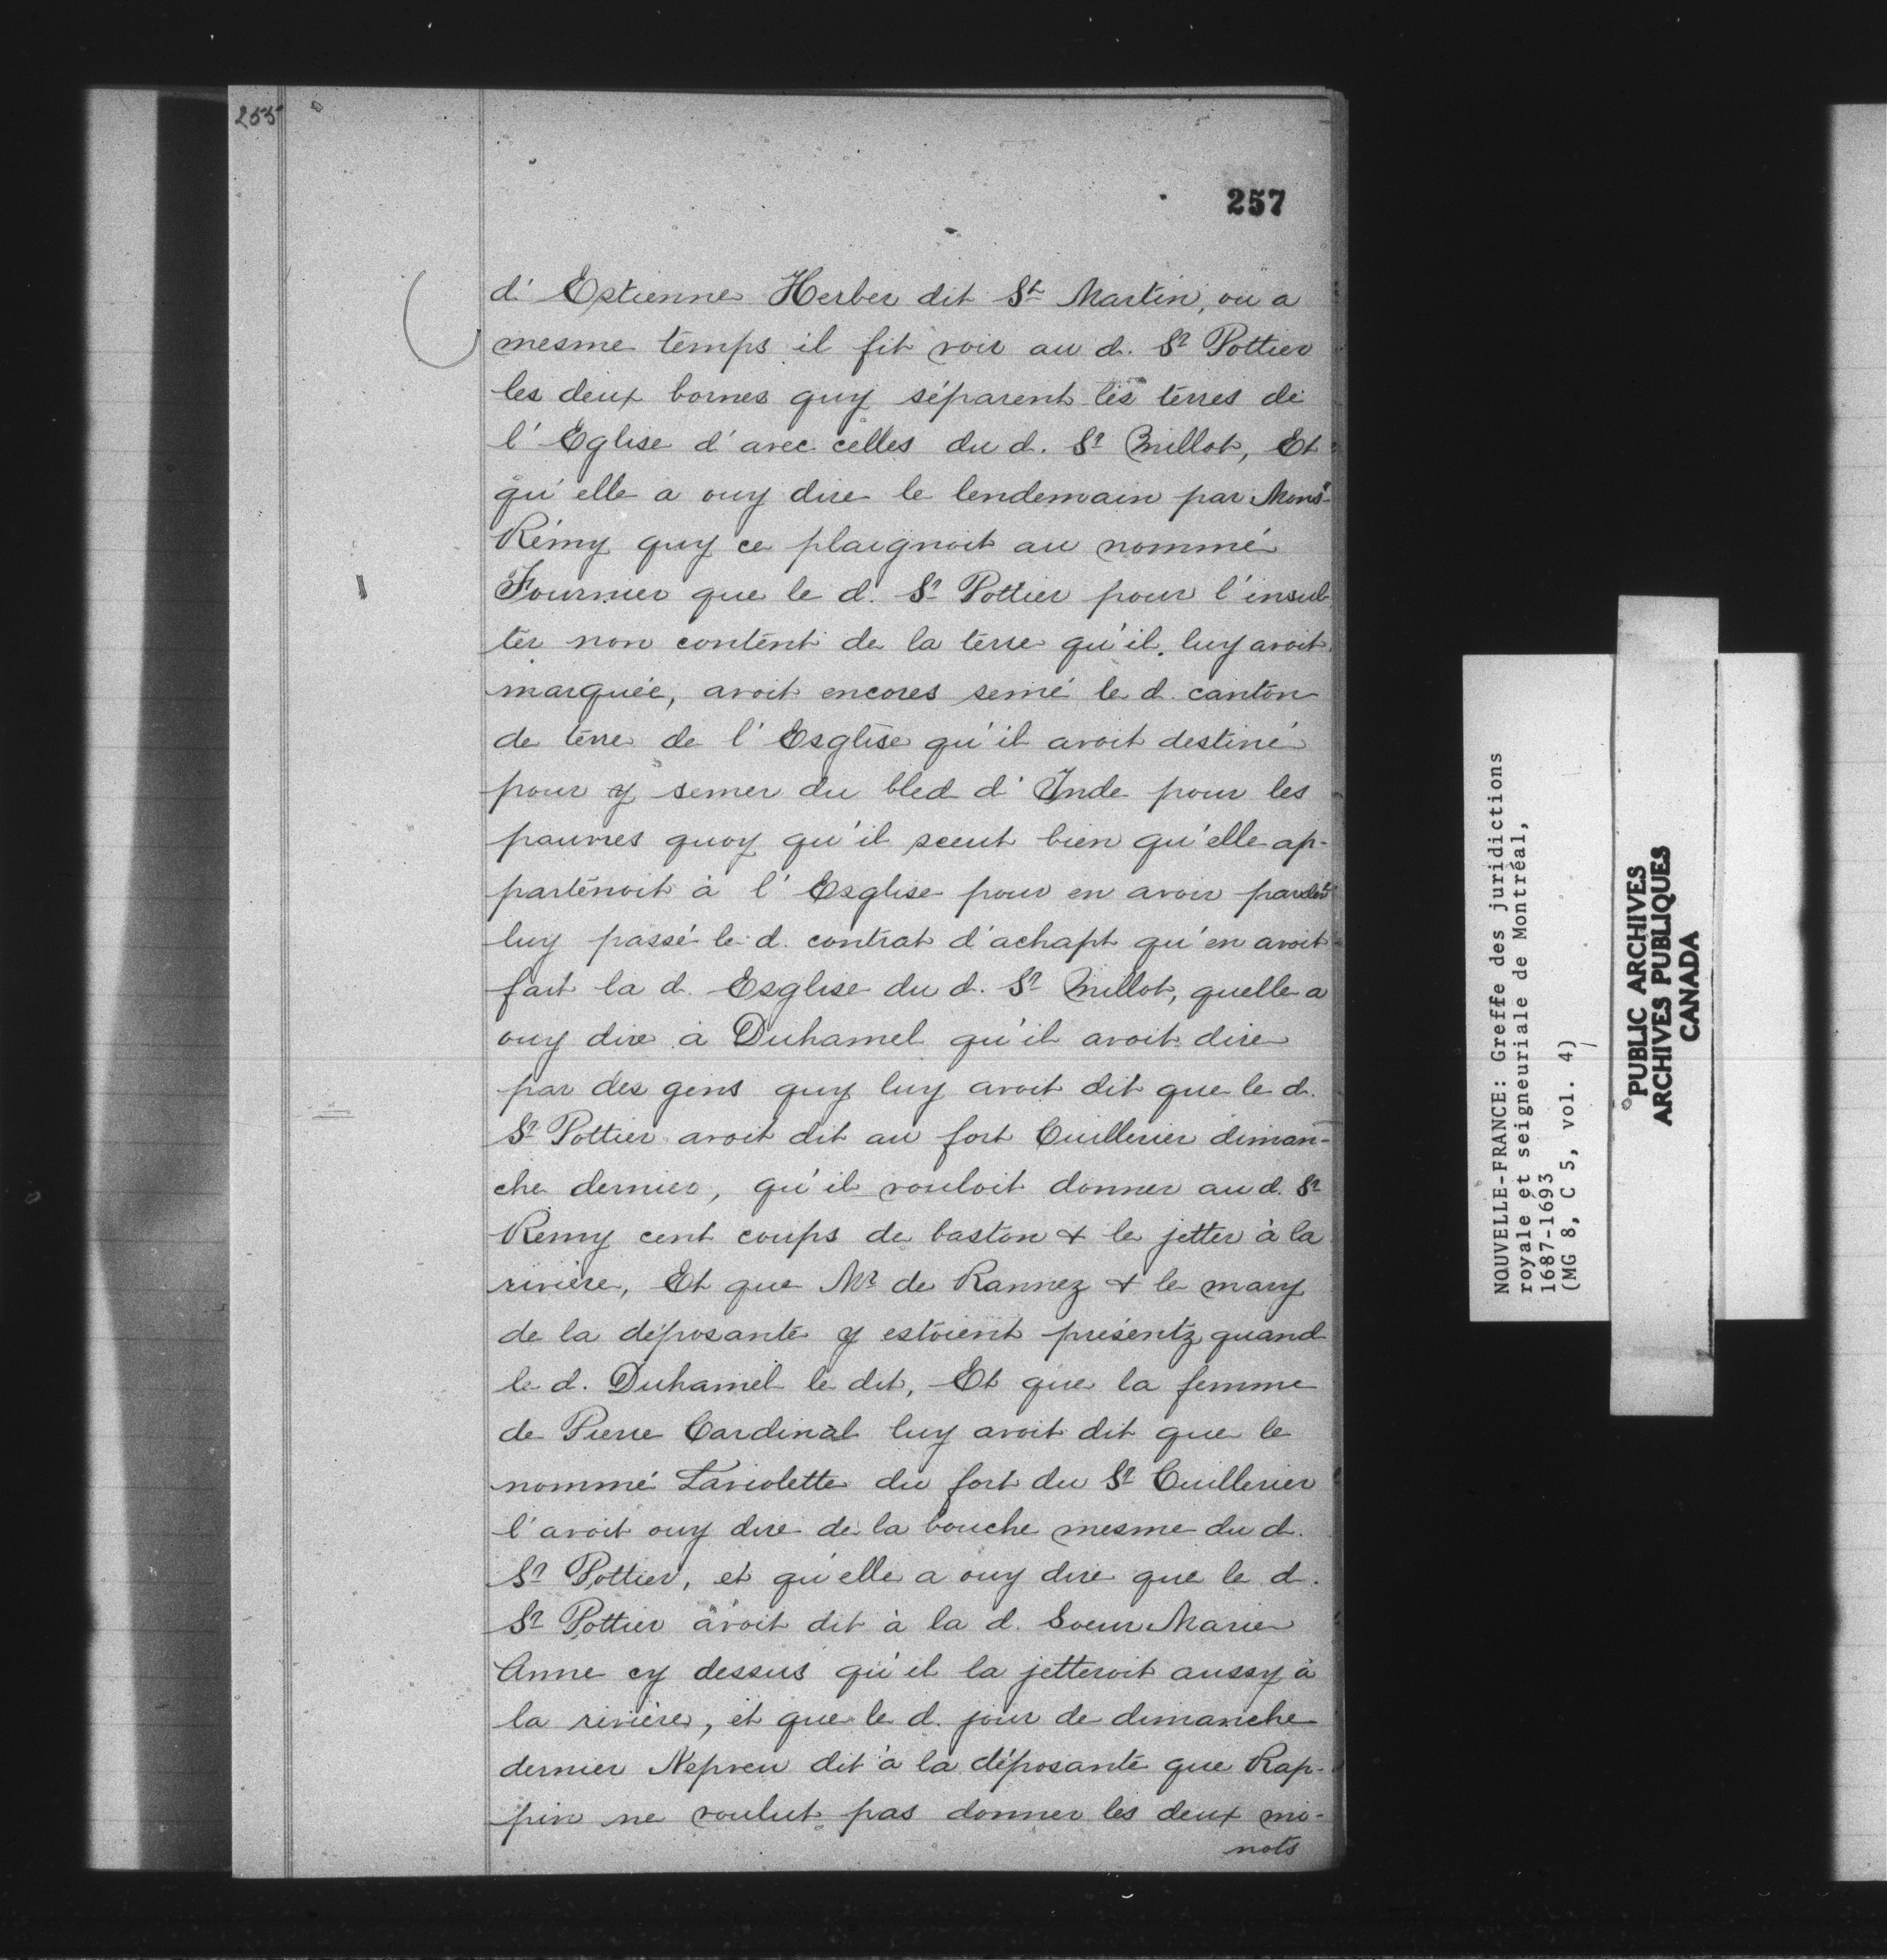 255
257
d'Estienne Herber dit St Martin, ou a
mesme temps il fit voir au d. Sr Pottier
les deux bornes quy séparent les terres de
l'Eglise d'avec celles du d. Sr Millot, Et
qu'elle a ouy dire le lendemain par Monsr
Rémy quy ce plaignoit au nommé
Fournier que le d. Sr Pottier pour l'insul-
ter non content de la terre qu'il luy avoit
marquée, avoit encores semé le d. canton
de terre de l'Esglise qu'il avoit destiné
pour y semer du bled d'Inde pour les
pauvres quoy qu'il sceut bien qu'elle ap-
partenoit à l'Esglise pour en avoir
luy passé le d. contrat d'achapt qu'en avoit
fait la d. Esglise du d. Sr Millot, quelle a
ouy dire à Duhamel qu'il avoit dire
par des gens quy luy avoit dit que le d.
Sr Pottier avoit dit au fort Cuillerier diman-
che dernier, qu'il vouloit donner au d. Sr
Remy cent coups de baston & le jetter à la
rivière, Et que Mr de Rannez & le mary
de la déposante y estoient présentz quand
le d. Duhamel le dit, Et que la femme
de Pierre Cardinal luy avoit dit que le
nommé Laviolette du fort du Sr Cuillerier
l'avoit ouy dire de la bouche mesme du d.
Sr Pottier, et qu'elle a ouy dire que le d.
Sr Pottier avoit dit à la d. Soeur Marie
Anne cy dessus qu'il la jetteroit aussy à
la rivière, et que le d. jour de dimanche
dernier Nepveu dit à la déposante que Rap-
pin ne voulut pas donner les deux mi-
nots
NOUVELLE-FRANCE: Greffe des juridictions
royale et seigneuriale de Montréal,
1687-1693
(MG 8, C 5, vol. 4)
PUBLIC ARCHIVES
ARCHIVES PUBLIQUES
CANADA